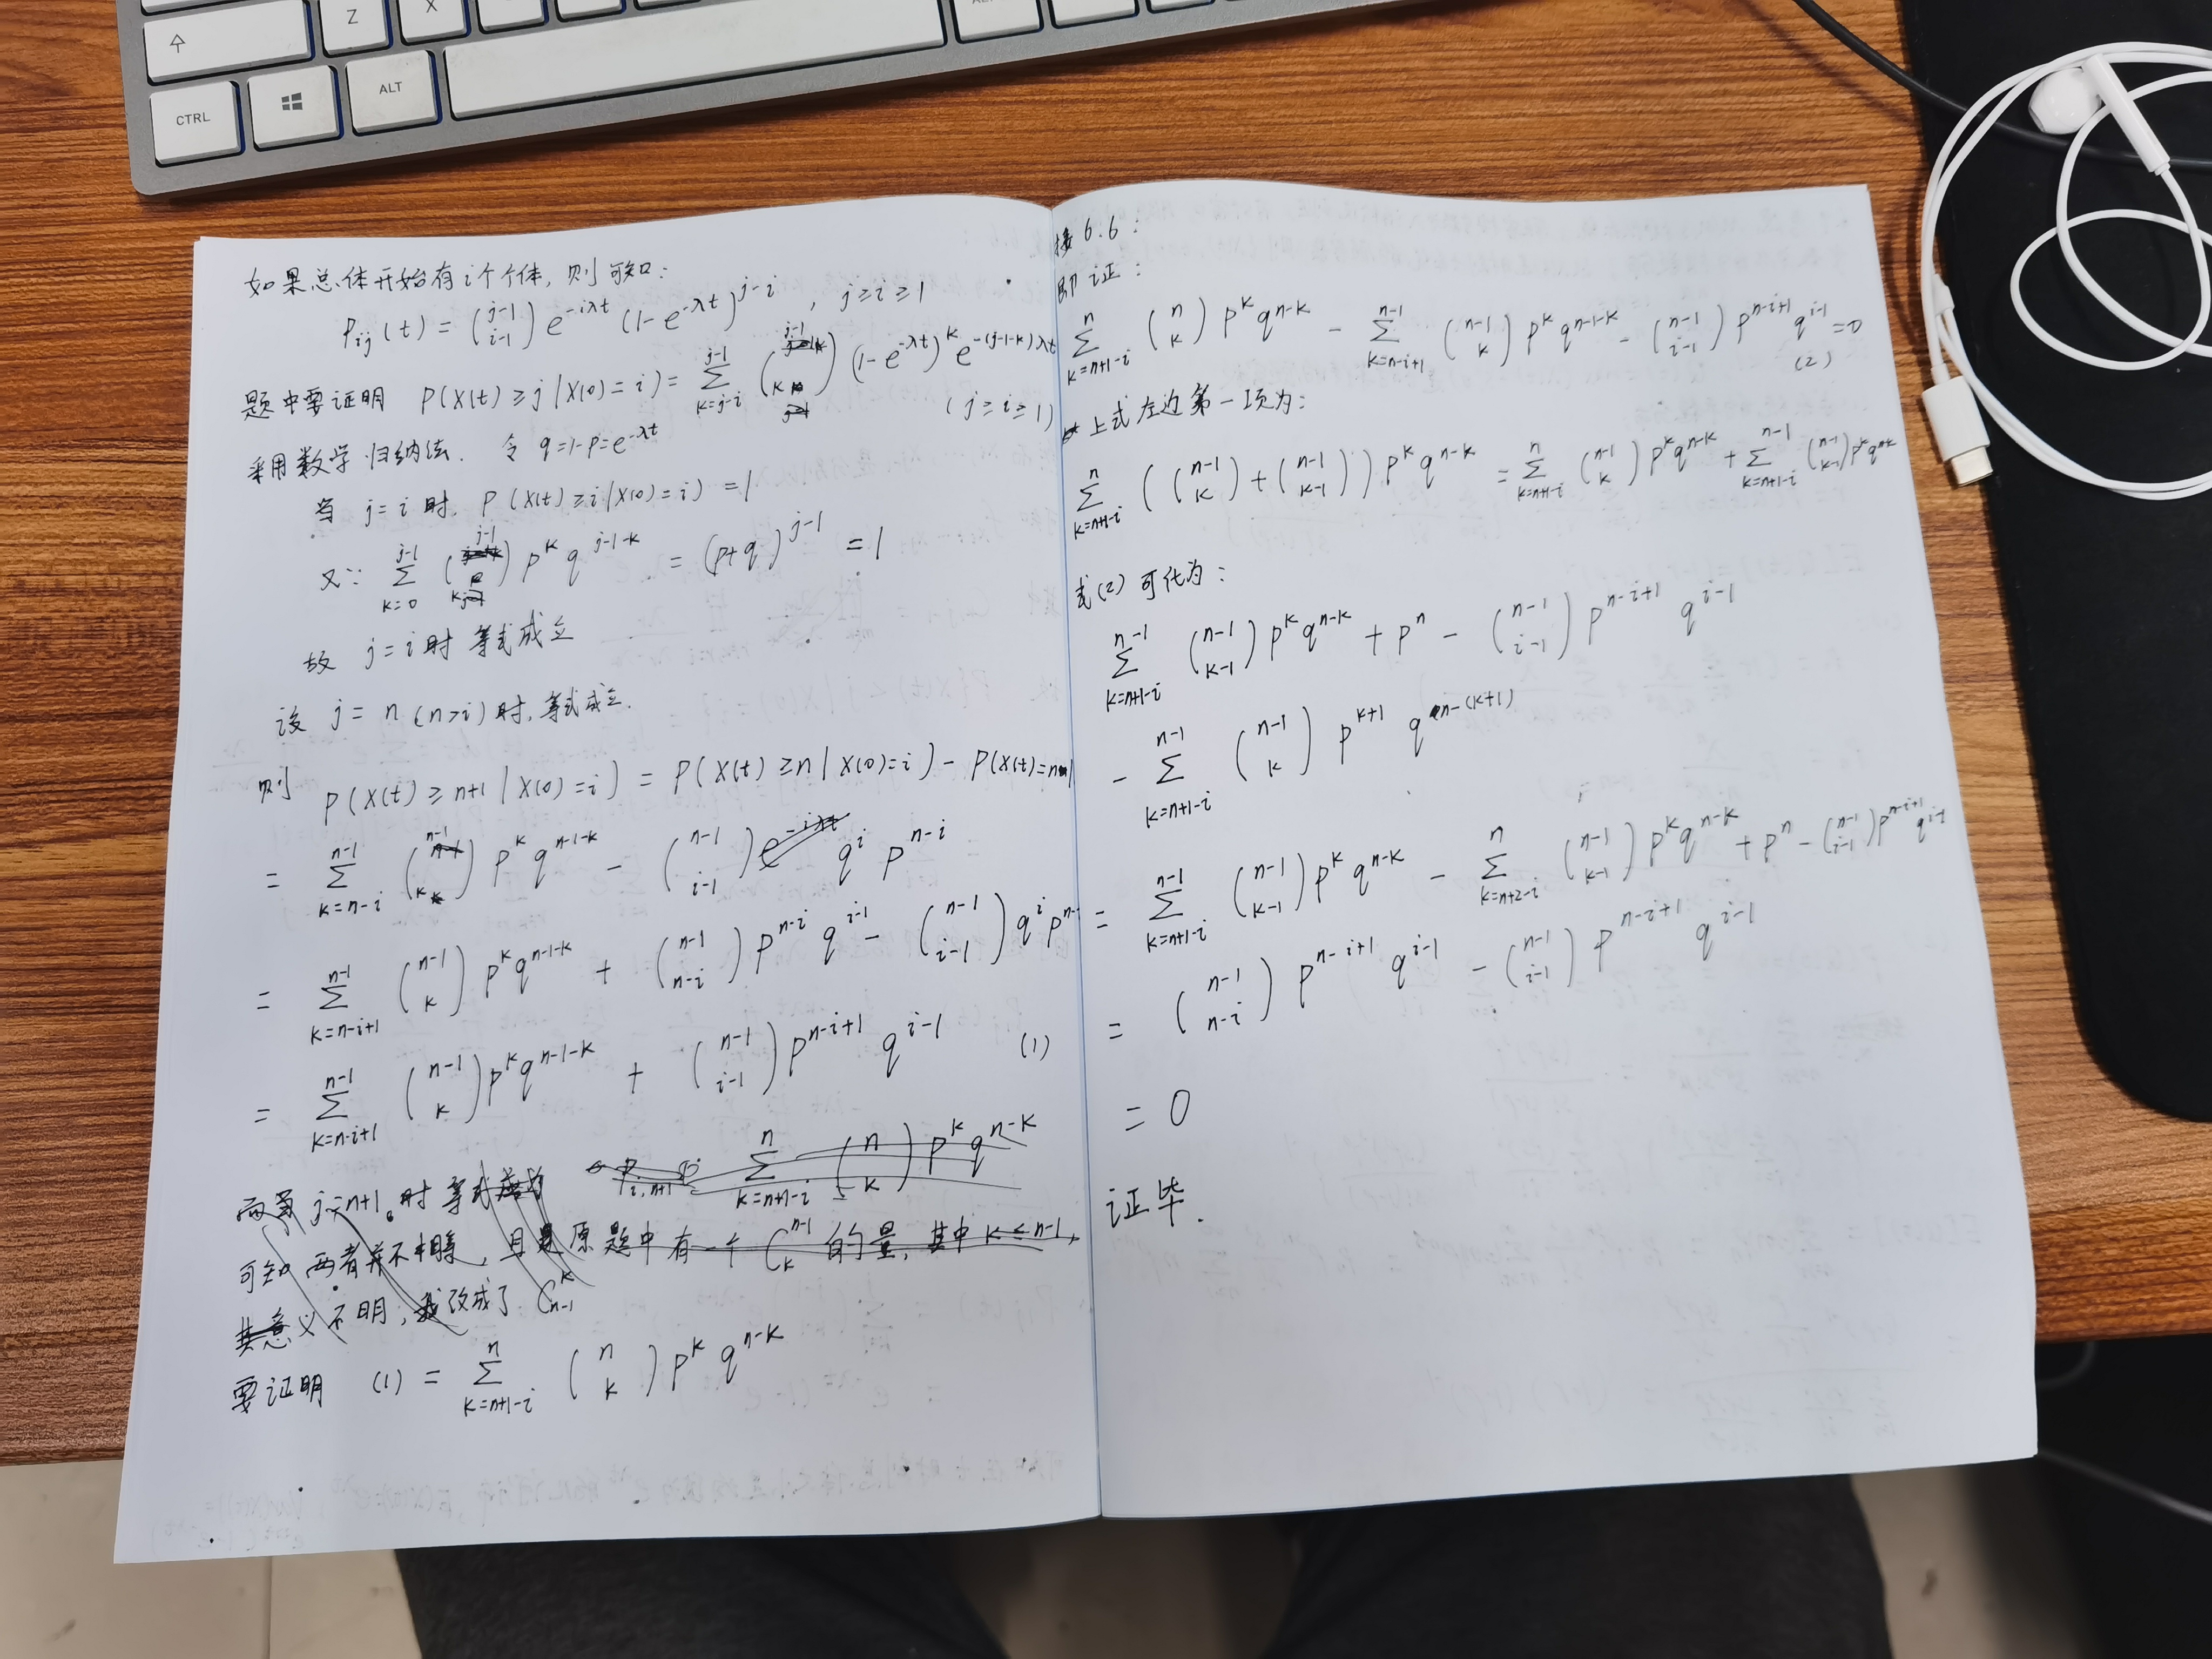 Z
X
CTRL
ALT
如果总体开始有i个个体, 则可知:
P_{ij}(t) = \binom{j-1}{i-1} e^{-iλt} (1-e^{-λt})^{j-i} , j≥i≥1
题中要证明 P(X(t)≥j|X(0)=i) = \sum_{k=j-i}^{j-1} \binom{j-1}{k} (1-e^{-λt})^k e^{-(j-1-k)λt}
(j≥i≥1)
采用数学归纳法. 令 q=1-p=e^{-λt}
当 j=i时, P(X(t)≥i|X(0)=i) = 1
又∵ \sum_{k=0}^{j-1} \binom{j-1}{k} p^k q^{j-1-k} = (p+q)^{j-1} = 1
故 j=i时 等式成立
设 j=n (n>i) 时, 等式成立.
则 P(X(t)≥n+1|X(0)=i) = P(X(t)≥n|X(0)=i) - P(X(t)=n
= \sum_{k=n-i}^{n-1} \binom{n-1}{k} p^k q^{n-1-k} - \binom{n-1}{i-1} q^i p^{n-i}
= \sum_{k=n-i+1}^{n-1} \binom{n-1}{k} p^k q^{n-1-k} + \binom{n-1}{n-i} p^{n-i} q^{i-1} - \binom{n-1}{i-1} q^i p^{n-
= \sum_{k=n-i+1}^{n-1} \binom{n-1}{k} p^k q^{n-1-k} + \binom{n-1}{i-1} p^{n-i+1} q^{i-1} (1)
而当 j=n+1 时 等式 P_{i,n+1} \sum_{k=n+1-i}^{n} \binom{n}{k} p^k q^{n-k}
可知 两者并不相等, 且原题中有一个 C_k^{n-1} 的量, 其中 k≤n-1,
其意义不明, 我改成了 C_{n-1}^k
要证明 (1) = \sum_{k=n+1-i}^{n} \binom{n}{k} p^k q^{n-k}
接 6.6:
即证:
\sum_{k=n+1-i}^{n} \binom{n}{k} p^k q^{n-k} - \sum_{k=n-i+1}^{n-1} \binom{n-1}{k} p^k q^{n-1-k} - \binom{n-1}{i-1} p^{n-i+1} q^{i-1} = 0
(2)
上式左边第一项为:
\sum_{k=n+1-i}^{n} (\binom{n-1}{k} + \binom{n-1}{k-1}) p^k q^{n-k} = \sum_{k=n+1-i}^{n} \binom{n-1}{k} p^k q^{n-k} + \sum_{k=n+1-i}^{n-1} \binom{n-1}{k-1} p^k q^{n-k}
式(2)可化为:
\sum_{k=n+1-i}^{n-1} \binom{n-1}{k-1} p^k q^{n-k} + p^n - \binom{n-1}{i-1} p^{n-i+1} q^{i-1}
- \sum_{k=n+1-i}^{n-1} \binom{n-1}{k} p^{k+1} q^{n-(k+1)}
= \sum_{k=n+1-i}^{n-1} \binom{n-1}{k-1} p^k q^{n-k} - \sum_{k=n+2-i}^{n} \binom{n-1}{k-1} p^k q^{n-k} + p^n - \binom{n-1}{i-1} p^{n-i+1} q^{i-1}
= \binom{n-1}{n-i} p^{n-i+1} q^{i-1} - \binom{n-1}{i-1} p^{n-i+1} q^{i-1}
= 0
证毕.